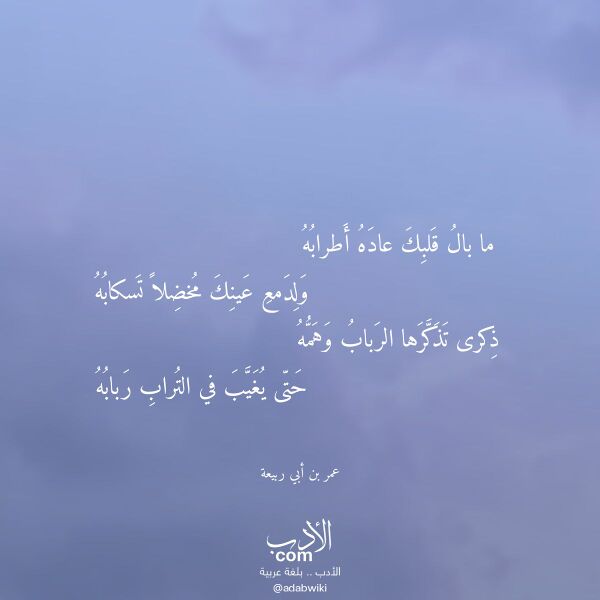 ما بالُ قَلبِكَ عادَهُ أَطرابُهُ
وَلِدَمعِ عَينِكَ مُخضِلاً تَسكابُهُ
ذِكرى تَذَكَّرَها الرَبابُ وَهَمُّهُ
حَتّى يُغَيَّبَ في التُرابِ رَبابُهُ
عمر بن أبي ربيعة
الأدب
com
الأدب .. بلغة عربية
@adabwiki